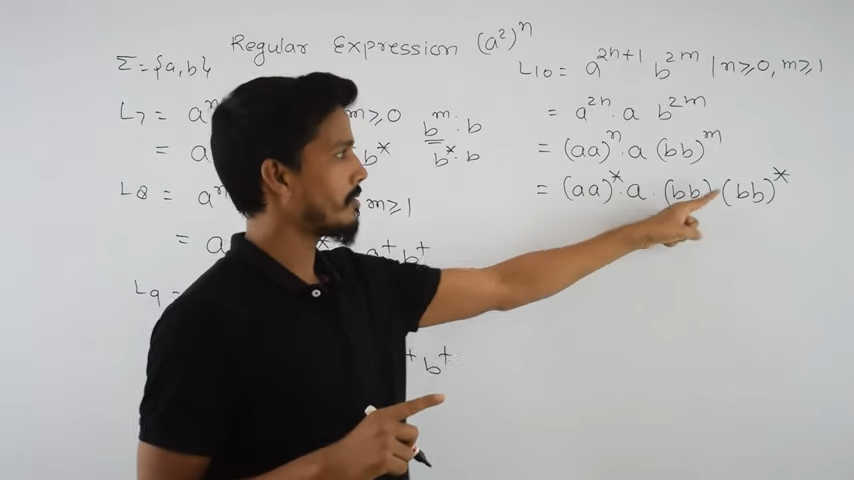 Regular Expression (a²)ⁿ
Σ={a,b}
L₇ = aⁿ m≥0 bᵐ·b
= a b* b*·b
L₈ = aⁿ m≥1
= a * a⁺b⁺
L₉ =
⁺b⁺
L₁₀= a²ⁿ⁺¹ b²ᵐ |n≥0,m≥1
= a²ⁿ·a b²ᵐ
= (aa)ⁿ·a (bb)ᵐ
= (aa)*·a·(bb)·(bb)*